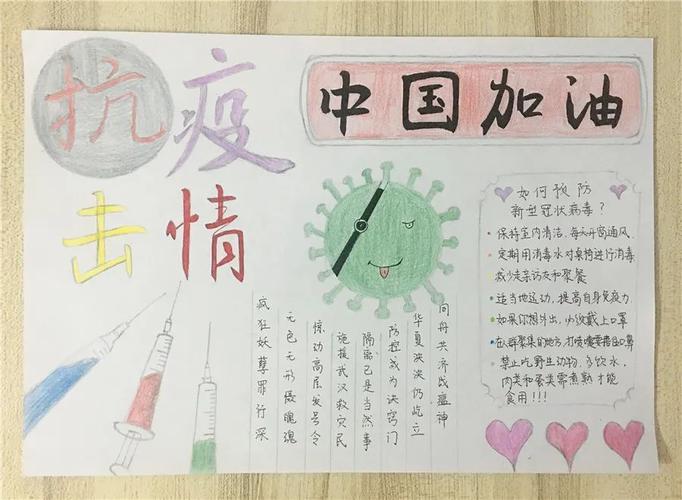 抗疫
击情
中国加油
疯狂妖孽罪行深
无色无形慑魄魂
惊动高层发号令
施援武汉救灾民
隔离已是当然事
防控成为诀窍门
华夏泱泱仍屹立
同舟共济战瘟神
如何预防
新型冠状病毒？
保持室内清洁，每天开窗通风.
定期用消毒水对桌椅进行消毒
减少走亲访友和聚餐
适当地运动，提高自身免疫力.
如果你想外出，必须戴上口罩
在人群聚集的地方，打喷嚏口罩
禁止吃野生动物，多饮水，
肉类和蛋类需煮熟才能
食用!!!